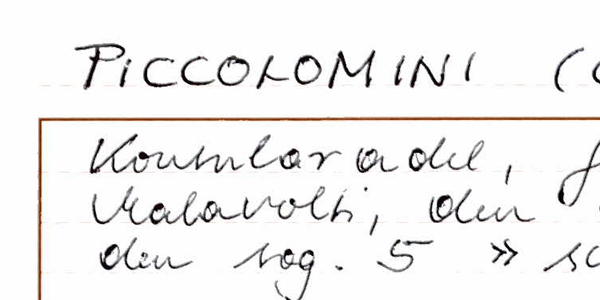 PICCOLOMINI (
Konsularadel,
Malavolti, den
den sog. 5 »